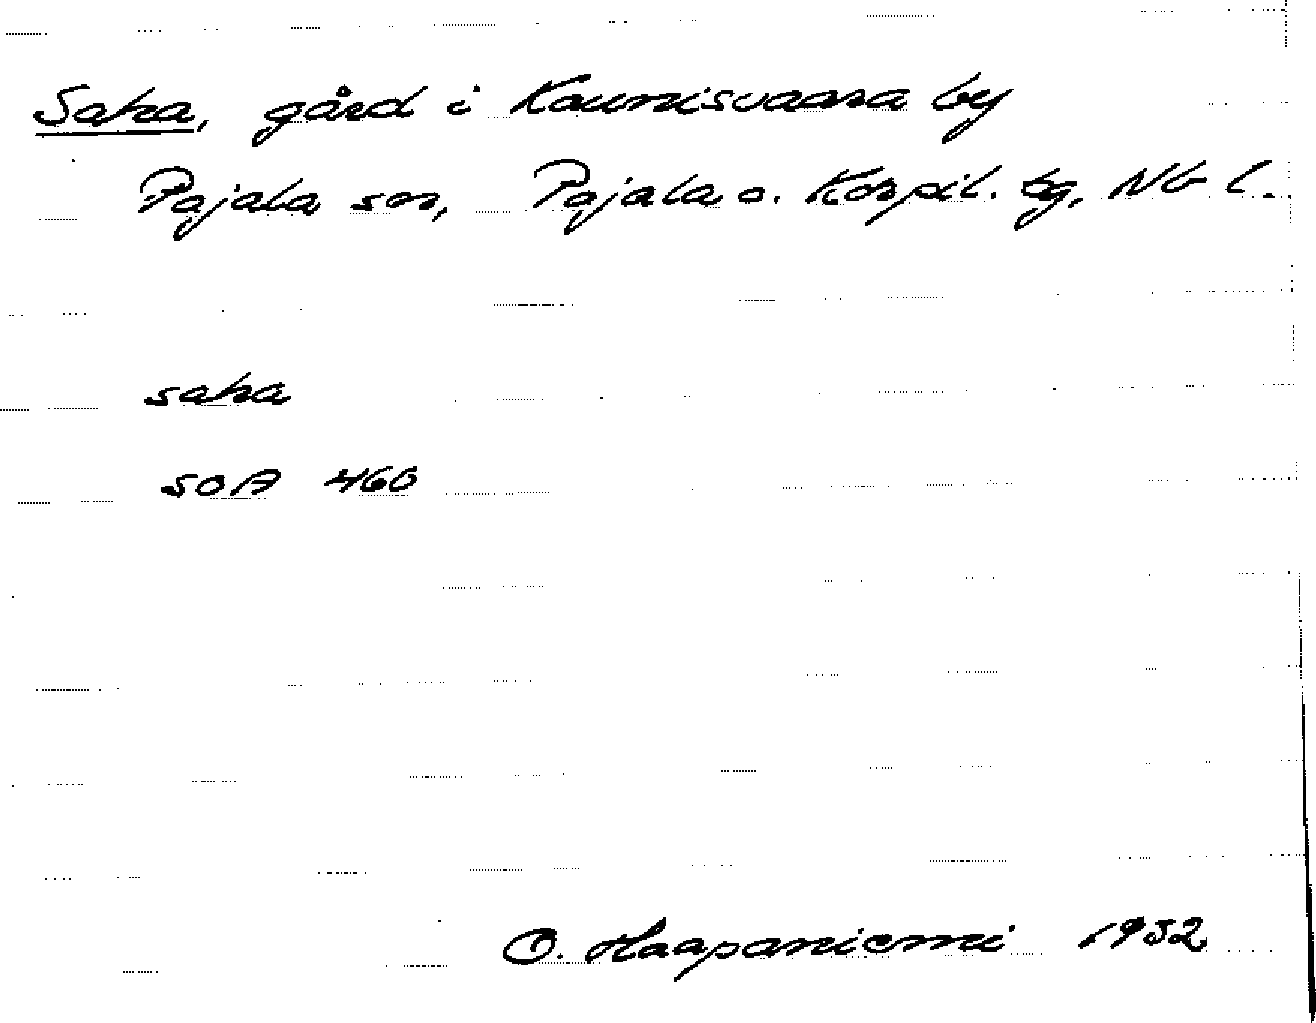 Saha, gård i Kaunisvaara by
Pajala sn, Pajala o. Korpil. tg, Nb l.
saha
SOA 460
O. Haapaniemi 1932